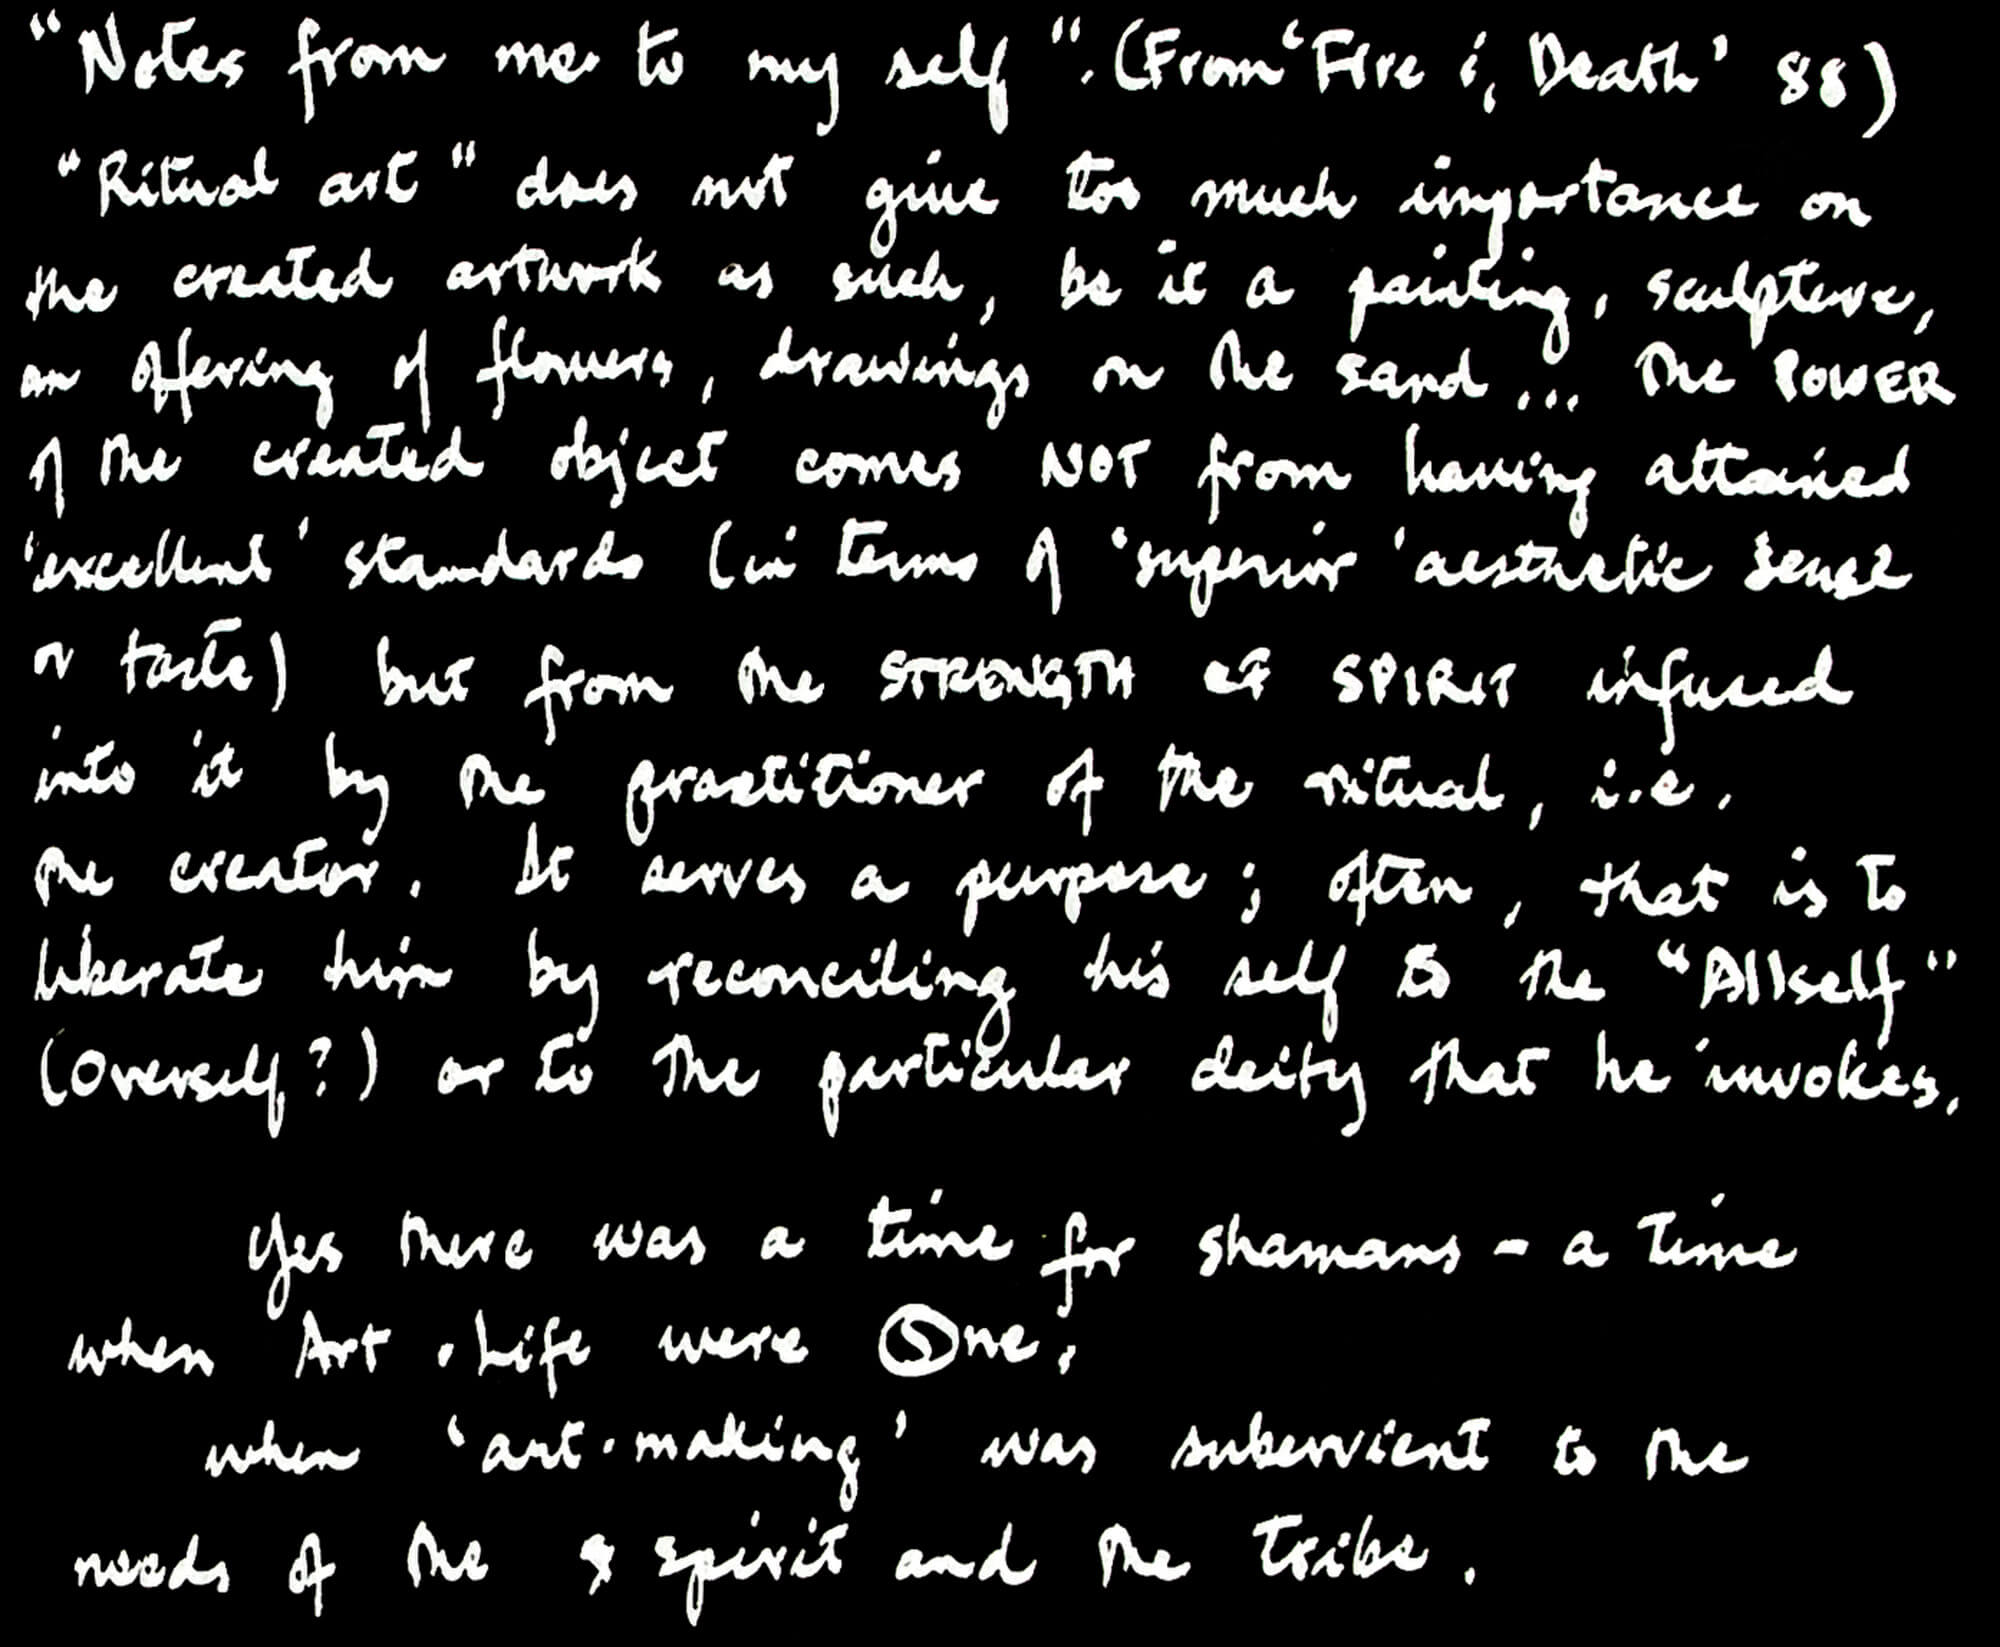 "Notes from me to my self". (From 'Fire & Death' 88)
"Ritual art" does not give too much importance on
the created artwork as such, be it a painting, sculpture,
an offering of flowers, drawings on the sand ... The POWER
of the created object comes NOT from having attained
'excellent' standards (in terms of 'superior' aesthetic sense
or taste) but from the STRENGTH OF SPIRIT infused
into it by the practitioner of the ritual, i.e.
the creator. It serves a purpose; often, that is to
liberate him by reconciling his self to the "Allself"
(Overself?) or to the particular deity that he invokes.
Yes there was a time for shamans - a time
when Art . Life were One;
when 'art-making' was subervient to the
needs of the spirit and the tribe.